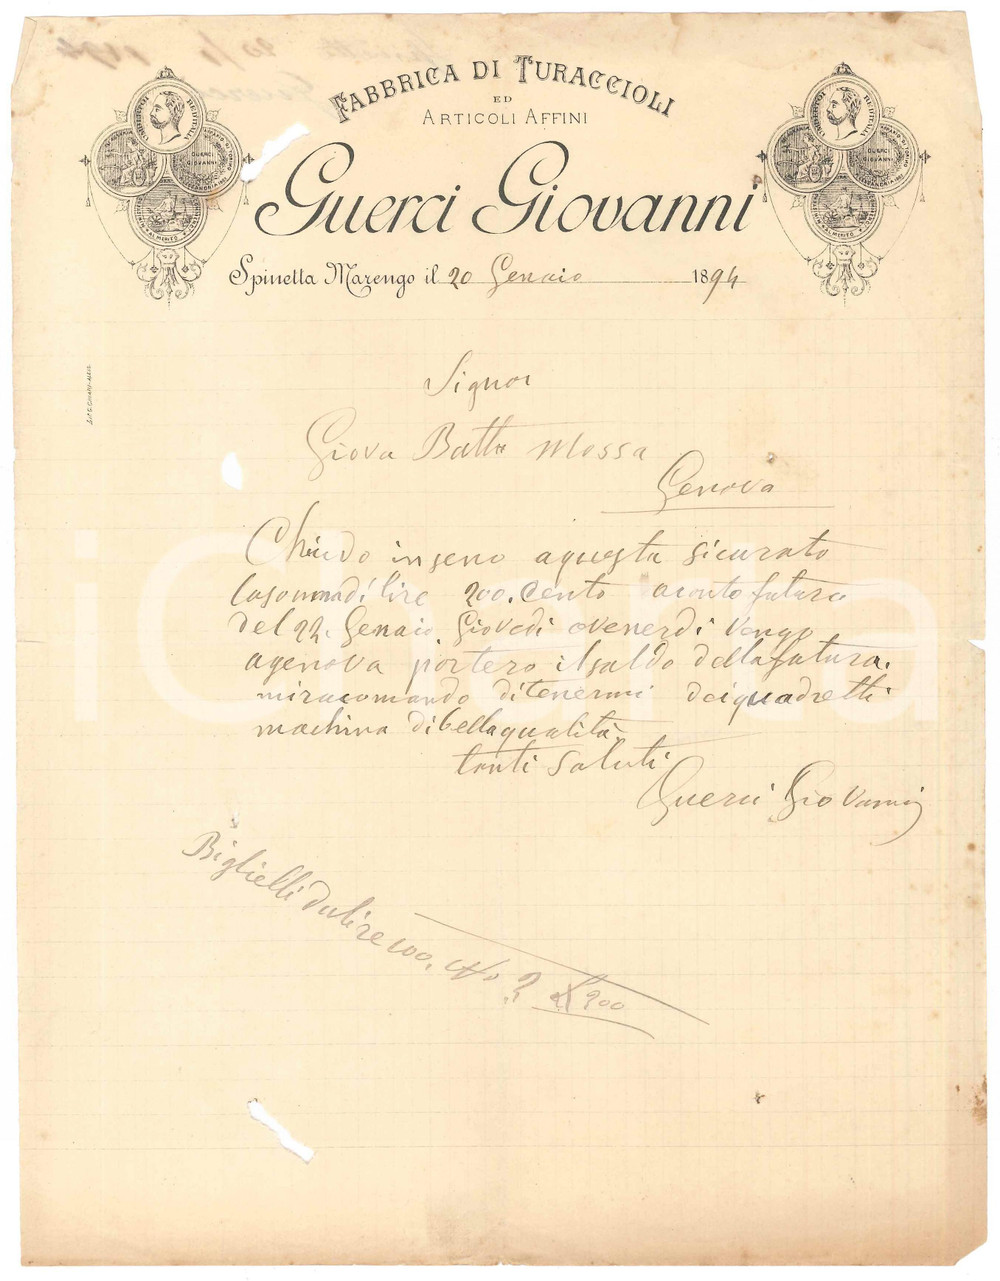 FABBRICA DI TURACCIOLI
ED
ARTICOLI AFFINI
Guerci Giovanni
Spinetta Marengo il 20 Genaio 1894
Signor
Giova Batt Mossa
Genova
Chiudo inseno aquesta sicurato
lasommadi lire 200. Cento aconto fatura
del 22. Genaio. Giovedi ovenerdi vengo
agenova portero ilsaldo dellafatura.
miracomando ditenermi deiquadretti
machina dibellaqualità
tanti saluti
Guerci Giovanni
Biglielli dalire 100. No 2 200
iCharta